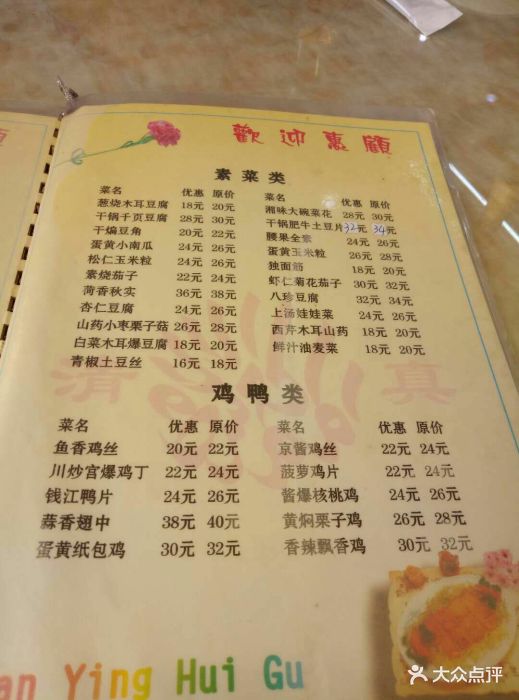 歡迎惠顧
素菜类
菜名 优惠 原价
葱烧木耳豆腐 18元 20元
干锅千页豆腐 28元 30元
干煸豆角 20元 22元
蛋黄小南瓜 24元 26元
松仁玉米粒 24元 26元
素烧茄子 22元 24元
荷香秋实 36元 38元
杏仁豆腐 24元 26元
山药小枣栗子菇 26元 28元
白菜木耳爆豆腐 18元 20元
青椒土豆丝 16元 18元
菜名 优惠 原价
湘味大碗菜花 28元 30元
干锅肥牛土豆片 32元 34元
腰果全素 24元 26元
蛋黄玉米粒 26元 28元
独面筋 18元 20元
虾仁菊花茄子 30元 32元
八珍豆腐 32元 34元
上汤娃娃菜 24元 26元
西芹木耳山药 18元 20元
鲜汁油麦菜 18元 20元
清真
鸡鸭类
菜名 优惠 原价
鱼香鸡丝 20元 22元
川炒宫爆鸡丁 22元 24元
钱江鸭片 24元 26元
蒜香翅中 38元 40元
蛋黄纸包鸡 30元 32元
菜名 优惠 原价
京酱鸡丝 22元 24元
菠萝鸡片 22元 24元
酱爆核桃鸡 24元 26元
黄焖栗子鸡 26元 28元
香辣飘香鸡 30元 32元
an Ying Hui Gu
大众点评
顧